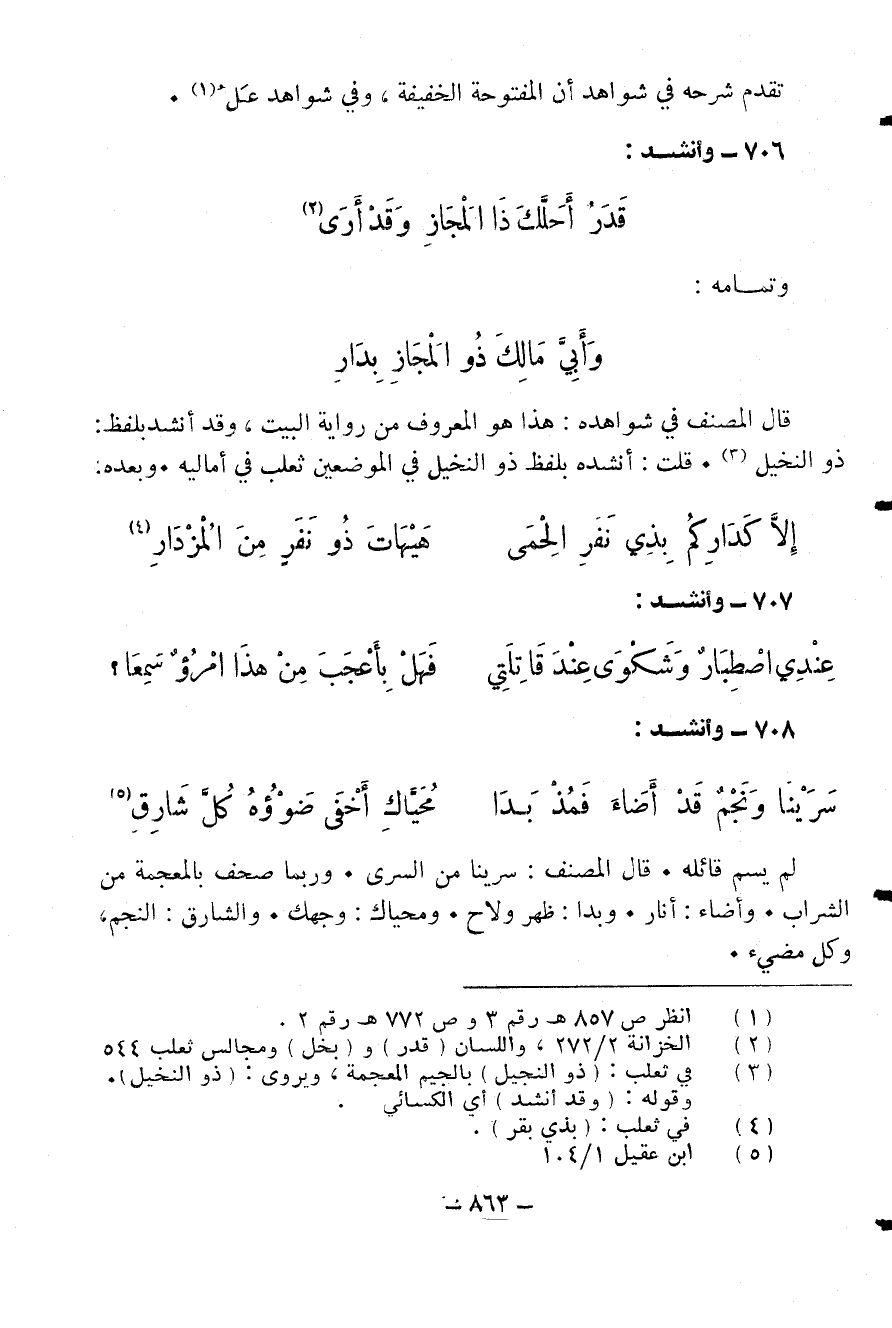 تقدم شرحه في شواهد أن المفتوحة الخفيفة ، وفي شواهد عَل (١) .
٧٠٦ ــ وأنشــد :
قَدَرُ أَحَلَّكَ ذَا الْمَجَازِ وَقَدْ أَرَى(٢)
وتمــامه :
وَأَبِيَّ مَالِكَ ذُو الْمَجَازِ بِدَارِ
قال المصنف في شواهده : هذا هو المعروف من رواية البيت ، وقد أنشد بلفظ :
ذو النخيل (٣) . قلت : أنشده بلفظ ذو النخيل في الموضعين ثعلب في أماليه . وبعده :
إِلاَّ كَدَارِكُمُ بِذِي نَفَرِ الْحِمَى هَيْهَاتَ ذُو نَفَرٍ مِنَ الْمُزْدَارِ(٤)
٧٠٧ ــ وأنشــد :
عِنْدِي اصْطِبَارٌ وَشَكْوَى عِنْدَ قَاتِلَتِي فَهَلْ بِأَعْجَبَ مِنْ هذَا امْرُؤٌ سَمِعَا ؟
٧٠٨ ــ وأنشــد :
سَرَيْنَا وَنَجْمٌ قَدْ أَضَاءَ فَمُذْ بَـدَا مُحَيَّاكِ أَخْفَى ضَوْؤُهُ كُلَّ شَارِقِ(٥)
لم يسم قائله . قال المصنف : سرينا من السرى . وربما صحف بالمعجمة من
الشراب . وأضاء : أنار . وبدا : ظهر ولاح . ومحياك : وجهك . والشارق : النجم،
وكل مضيء .
(١) انظر ص ٨٥٧ هـ رقم ٣ و ص ٧٧٢ هـ رقم ٢ .
(٢) الخزانة ٢٧٢/٢ ، واللسان ( قدر ) و ( بخل ) ومجالس ثعلب ٥٤٤
(٣) في ثعلب : ( ذو النجيل ) بالجيم المعجمة ، ويروى : ( ذو النخيل ).
وقوله : ( وقد أنشد ) أي الكسائي .
(٤) في ثعلب : ( بذي بقر ) .
(٥) ابن عقيل ١٠٤/١
ــ ٨٦٣ ــ